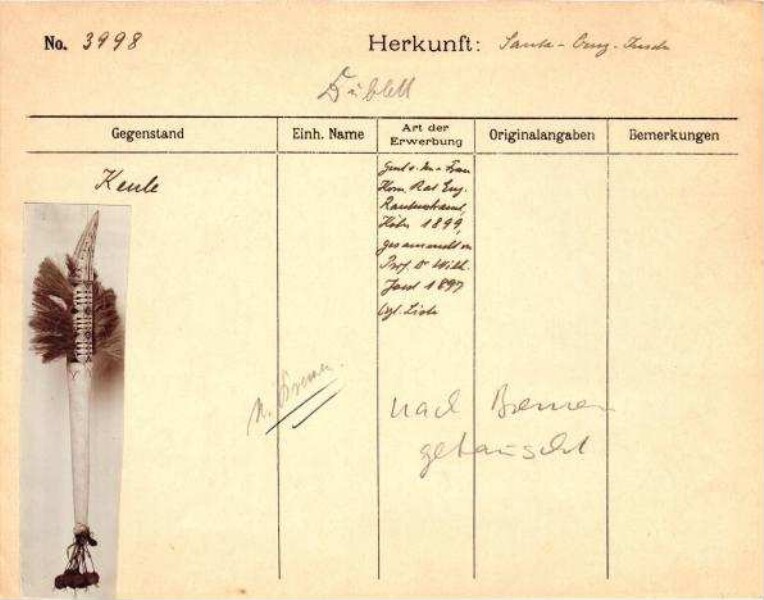 No. 3998
Herkunft: Santa-Cruz-Inseln
Dublett
Gegenstand
Einh. Name
Art der Erwerbung
Originalangaben
Bemerkungen
Keule
Frau
Kom. Rat Eug.
Rautenstrauch,
Köln 1899,
gesammelt v.
Prof. Dr Wilh.
Joest 1897
vgl. Liste
n. Bremen.
nach Bremen
getauscht